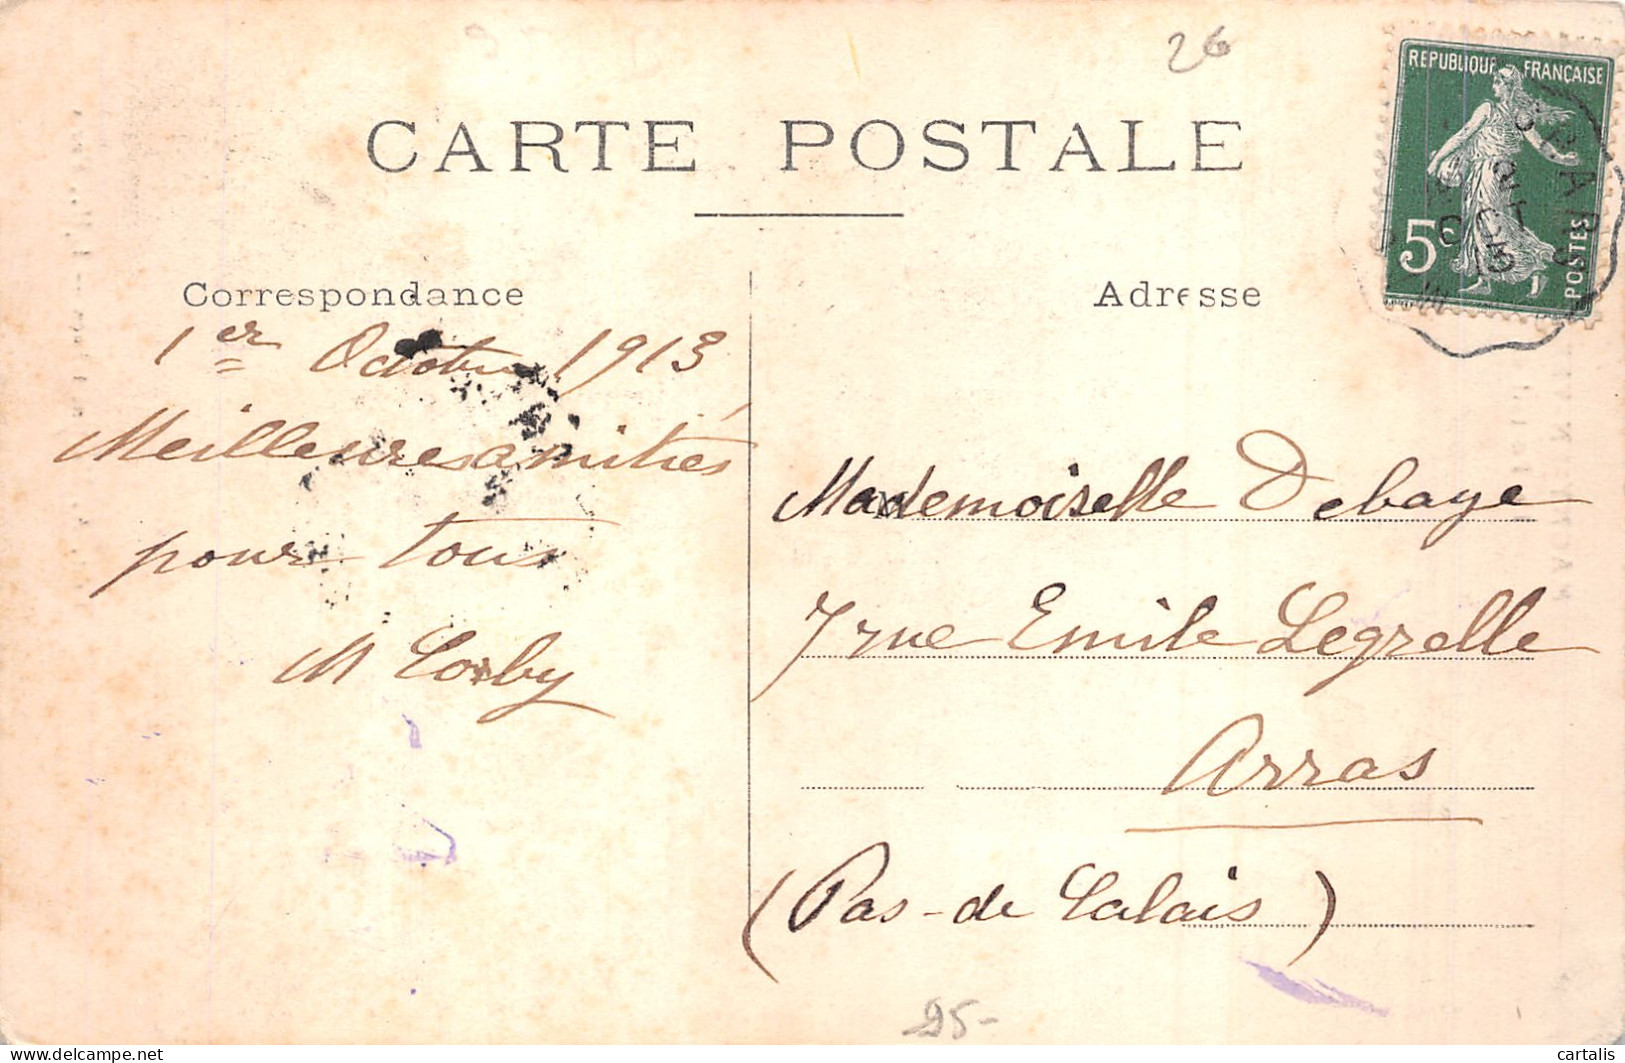 26
CARTE POSTALE
REPUBLIQUE FRANÇAISE
5c
POSTES
OCT
13
Correspondance
Adresse
1er Octobre 1913
Meilleures amitiés
pour tous
M Corby
Mademoiselle Debaye
7 rue Emile Legrelle
Arras
(Pas-de Calais)
25-
delcampe.net
cartalis